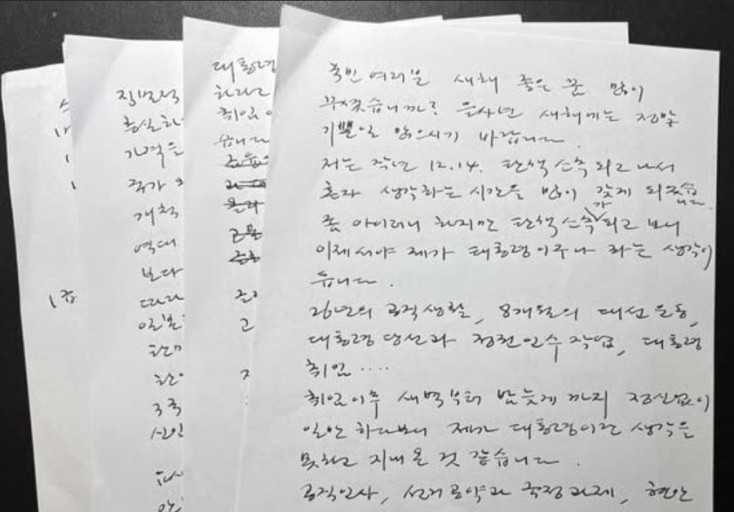 국민 여러분 새해 좋은 꿈 많이
꾸셨습니까? 을사년 새해에는 정말
기쁜일 많으시기 바랍니다.
저는 작년 12.14. 탄핵소추되고 나서
혼자 생각하는 시간을 많이 갖게 되었습니다.
좀 아이러니 하지만 탄핵소추가 되고 보니
이제서야 제가 대통령이구나 하는 생각이
듭니다.
26년의 공직생활, 8개월의 대선 운동,
대통령 당선과 정권인수 작업, 대통령
취임....
취임이후 새벽부터 밤늦게 까지 정신없이
일만 하다보니 제가 대통령이란 생각을
못하고 지내온 것 같습니다.
공직인사, 선거공약과 국정과제, 현안
대통령
하라고
취임
습니다
고
직면적
충실하
가격은
국가
개척
역대
보다
따라
일본
3국